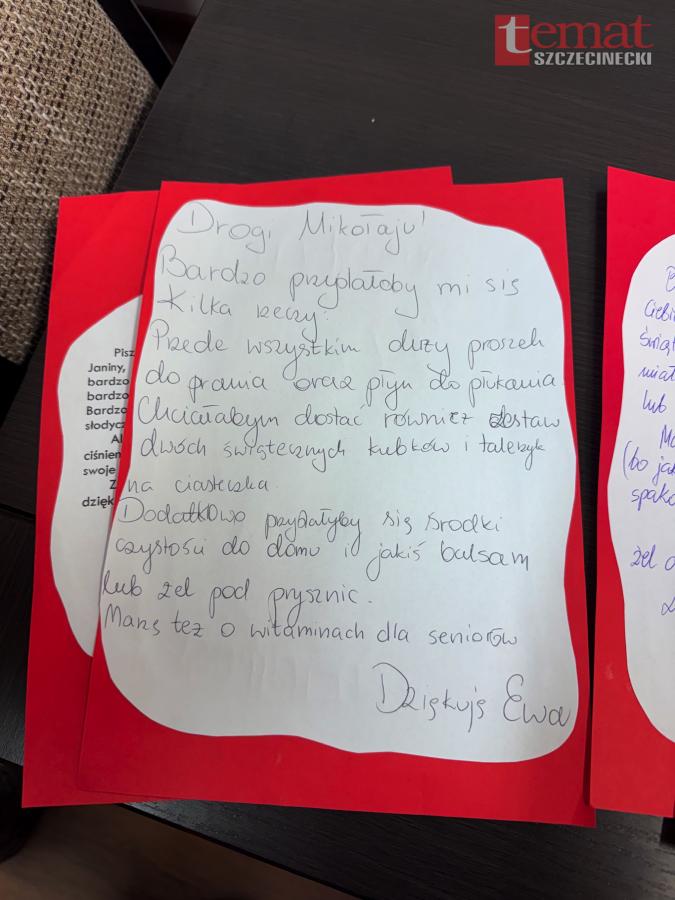 temat
SZCZECINECKI
Drogi Mikołaju!
Bardzo przydałoby mi się
kilka rzeczy:
Przede wszystkim duży proszek
do prania oraz płyn do płukania.
Chciałabym dostać również zestaw
dwóch świątecznych kubków i talerzyk
na ciasteczka.
Dodatkowo przydałyby się środki
czystości do domu i jakiś balsam
lub żel pod prysznic.
Marzę też o witaminach dla seniorów
Dziękuję Ewa
Pisz
Janiny,
bardzo
bardzo
Bardzo
słodycz
Al
ciśnien
swoje
Z
dzięk
B
Ciebi
świąt
miał
lub
Ma
(bo jak
spako
żel o